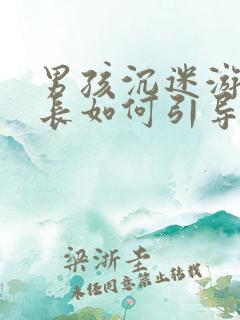 男孩沉迷游
长如何引导
梁浙圭
未经同意禁止转载